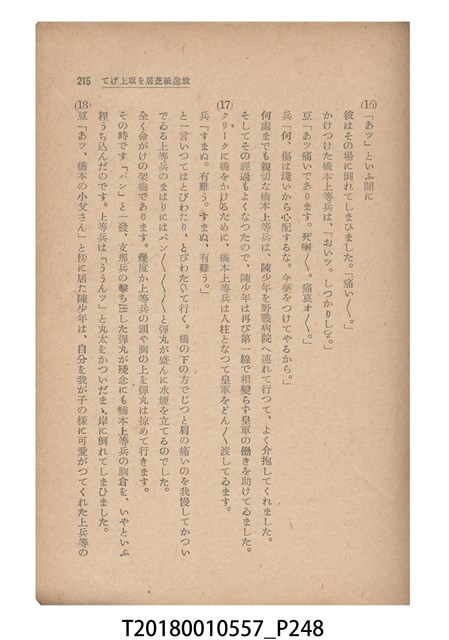 放送紙芝居を取上げて
215
(16)
「あツ」といふ間に
彼はその場に倒れてしまひました。「痛い〱。」
かけつけた橋本上等兵は、「おいツ。しつかりしろ。」
豆「あツ痛いであります。死喇〱。痛哀オ〱。」
兵「何、傷は淺いから心配するな。今藥をつけてやるから。」
何處までも親切な橋本上等兵は、陳少年を野戰病院へ連れて行つて、よく介抱してくれました。
そしてその經過もよくなつたので、陳少年は再び第一線で相變らず皇軍の働きを助けてゐました。
(17)
クリークに橋をかけるために、橋本上等兵は人柱となつて皇軍をどん〱渡してゐます。
兵「すまぬ。有難う。すまぬ、有難う。」
と一言いつてはとびわたり、とびわたいて行く。橋の下の方でじつと肩の痛いのを我慢してかつい
でゐる上等兵のまはりにはパン〱〱〱と彈丸が盛んに水煙を立てるのでした。
全く命がけの架橋であります。幾度か上等兵の頭や胸の上を彈丸は掠めて行きます。
その時です「パン」と一發、支那兵の擊ち出した彈丸が殘念にも橋本上等兵の胸倉を、いやといふ
程うち込んだのです。上等兵は「ううんツ」と丸太をかついだまゝ岸に倒れてしまひました。
(18)
豆「あツ、橋本の小父さん」と傍に居た陳少年は、自分を我が子の樣に可愛がつてくれた上兵等の
T20180010557_P248